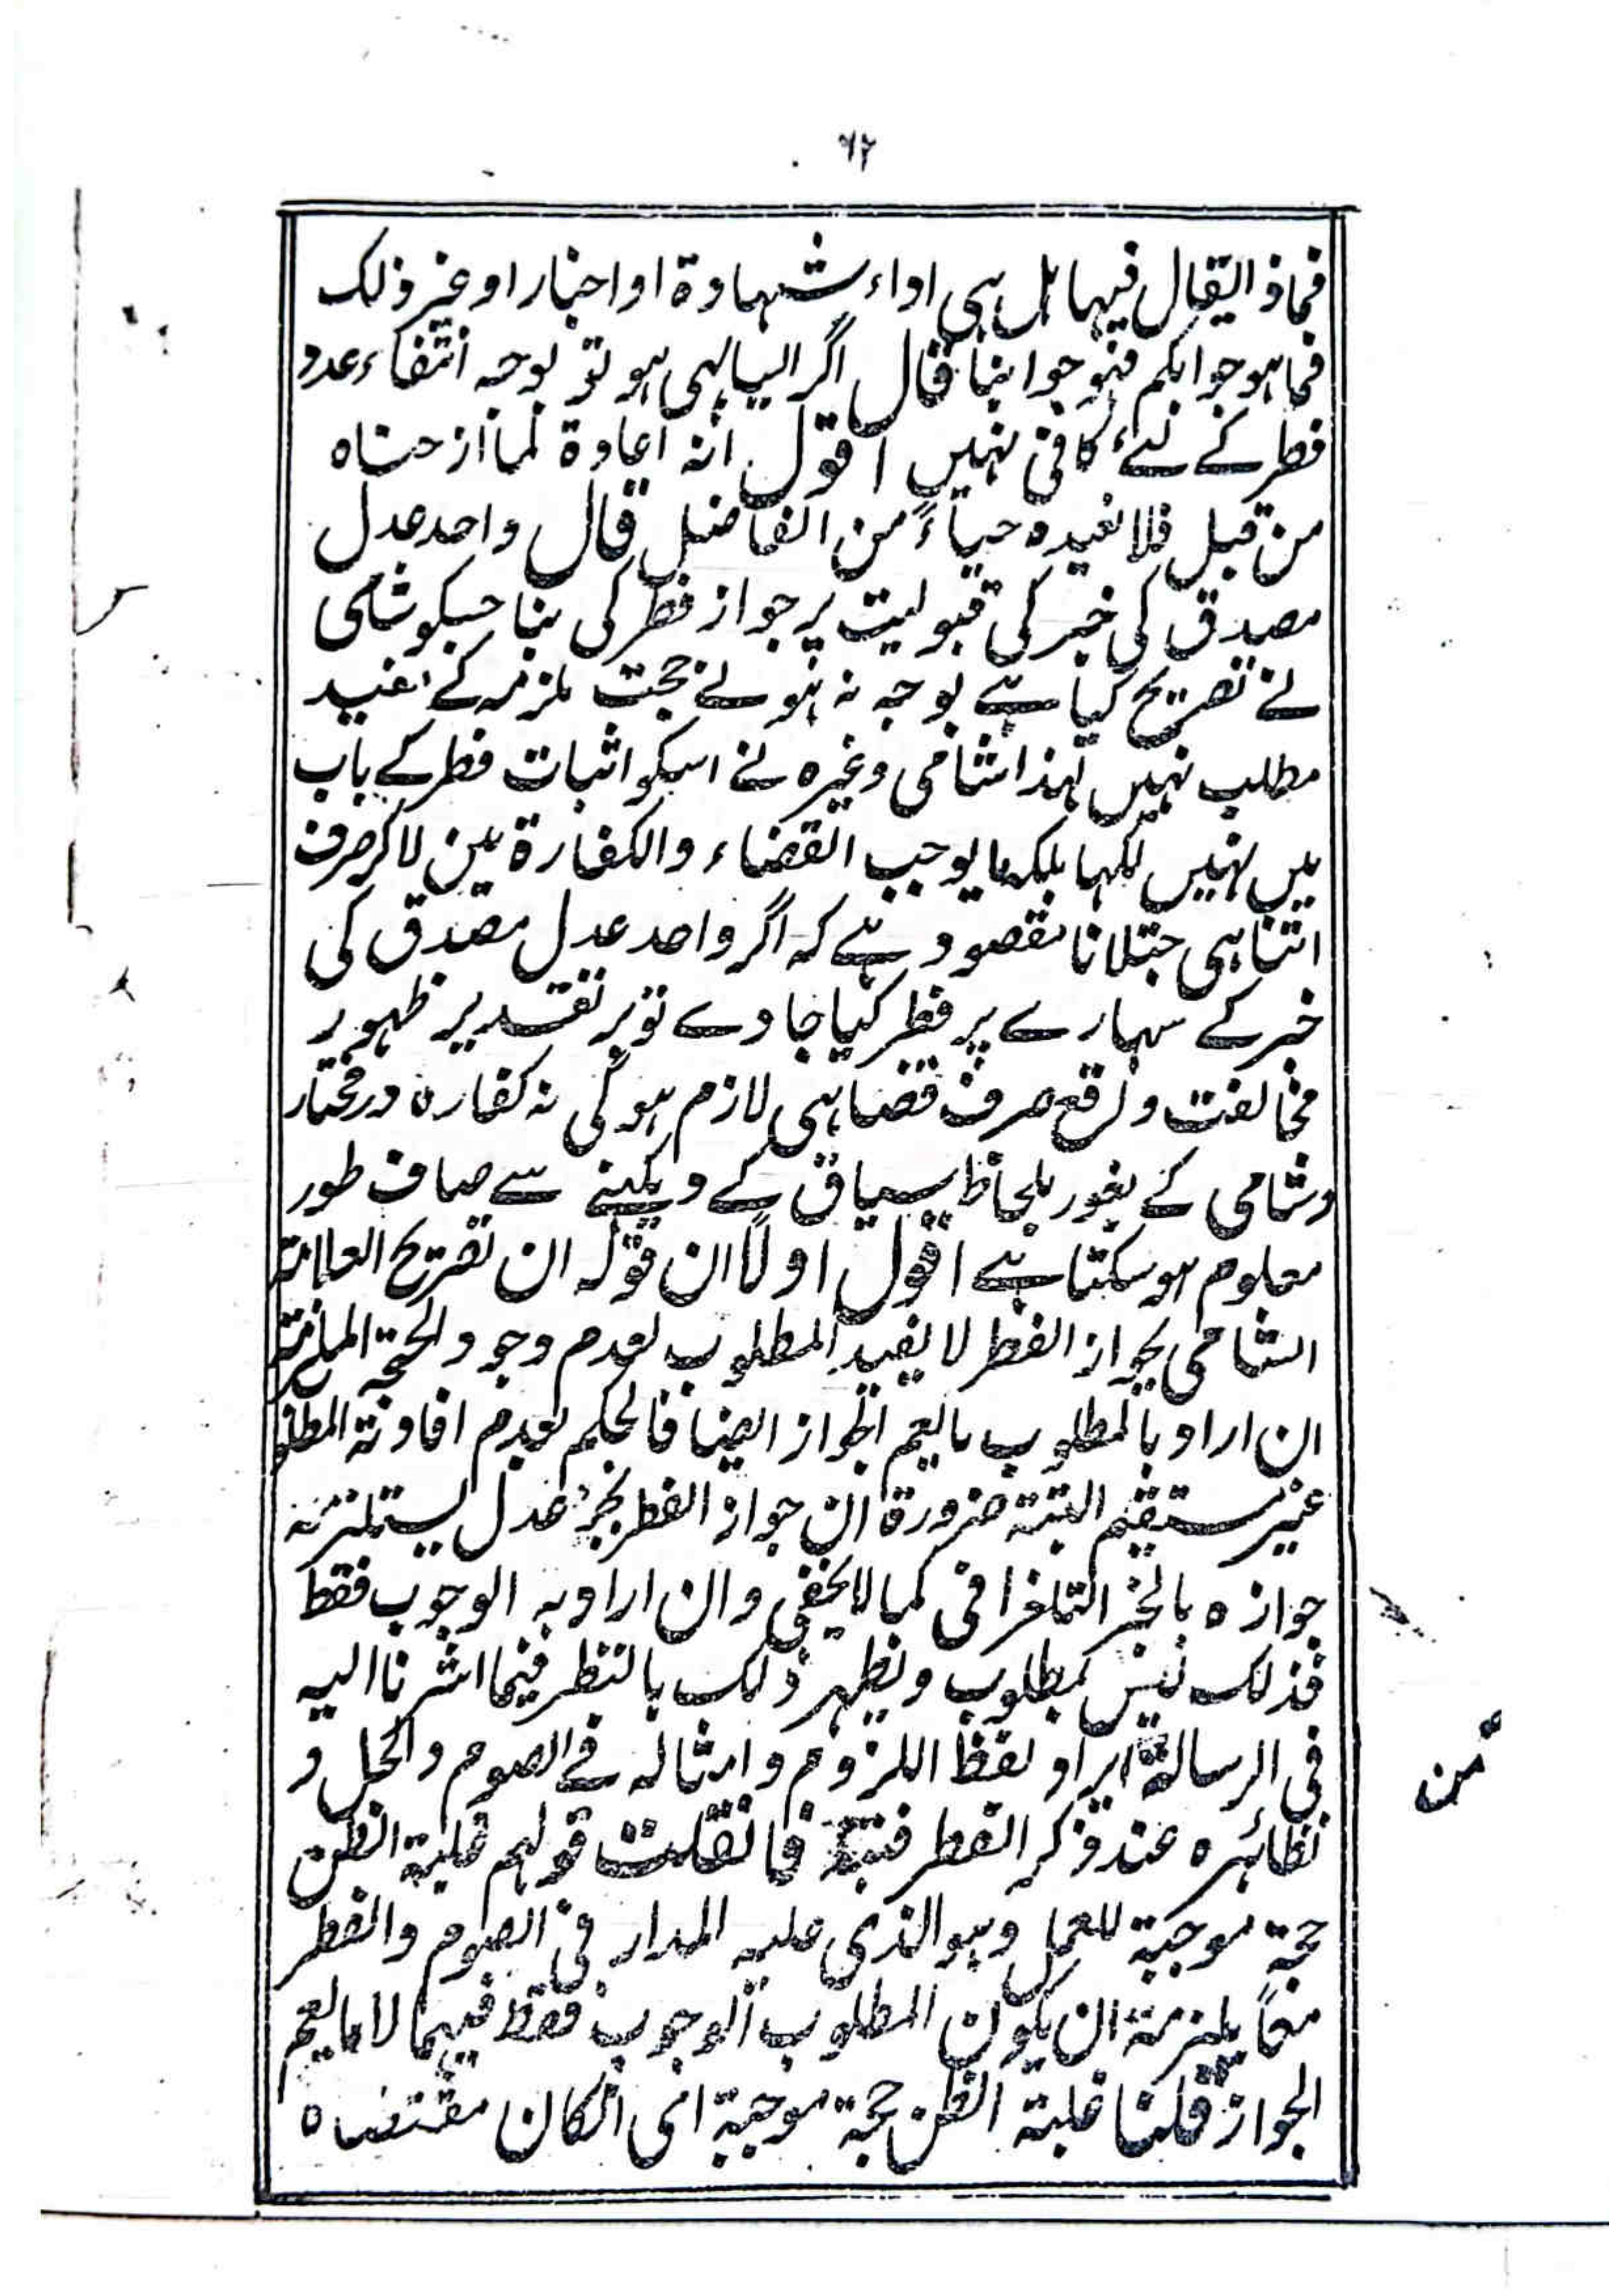 ٦٢
فماذا يقال فيها هل هى اداء شهادة او اخبار او غير ذلك
فما هو جوابكم فهو جوابنا قال اگر ایسا ہی ہو تو بوجہ انتفاء عدد
فطر کے لئے کافی نہیں اقول انه اعادة لما ازحناه
من قبل فلا نعيده حياءً من الفاضل قال واحد عدل
مصدق کی خبر کی قبولیت پر جواز فطر کی بنا جسکو شامی
نے تصریح کیا ہے بوجہ نہ ہونے حجت ملزمہ کے مفید
مطلب نہیں لہذا شامی وغیرہ نے اسکو اثبات فطر کے باب
میں نہیں لکہا بلکہ ما یوجب القضاء والکفارۃ میں لا کر صرف
اتنا ہی جتلانا مقصود ہے کہ اگر واحد عدل مصدق کی
خبر کے سہارے پر فطر کیا جاوے تو بر تقدیر ظہور
مخالفت واقع صرف قضا ہی لازم ہوگی نہ کفارہ درمختار
وشامی کے بغور بلحاظ سیاق کے دیکہنے سے صاف طور
معلوم ہو سکتا ہے اقول اولاً ان قوله ان تصريح العلامة
الشامى بجواز الفطر لا يفيد المطلوب لعدم وجود الحجة الملزمة
ان اراد بالمطلوب ما يعم الجواز ايضا فالحكم بعدم افادته المطلوب
غير مستقيم البتة ضرورة ان جواز الفطر بخبر عدل يستلزم
جوازه بالخبر التلغرافى كما لا يخفى وان اراد به الوجوب فقط
فذلك ليس بمطلوب ويظهر ذلك بالنظر فيما اشرنا اليه
فى الرسالة من ايراد لفظ اللزوم وامثاله فے الصوم والحل و
نظائره عند ذكر الفطر فتنبه فان قلت قولهم غلبة الظن
حجة موجبة للعمل وهو الذى عليه المدار فى الصوم والفطر
معاً يلزمه ان يكون المطلوب الوجوب فقط فيهما لا ما يعم
الجواز قلنا غلبة الظن حجة موجبة اى ان كان مقتضاه